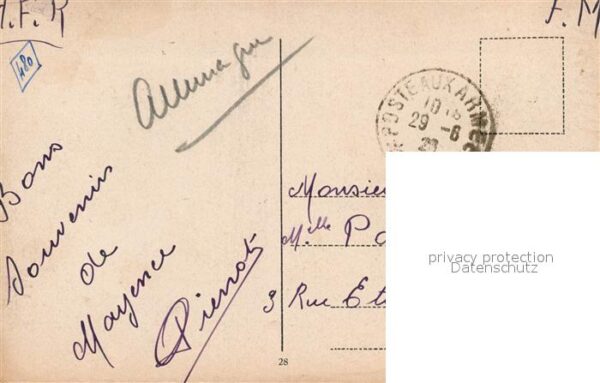 A.F.R
F.M
480
Allemagne
POSTE AUX ARMEES
29 -6
Bons
souvenirs
de
Mayence
Pierrot
Monsie
Mlle Pa
3 Rue Et
28
privacy protection
Datenschutz